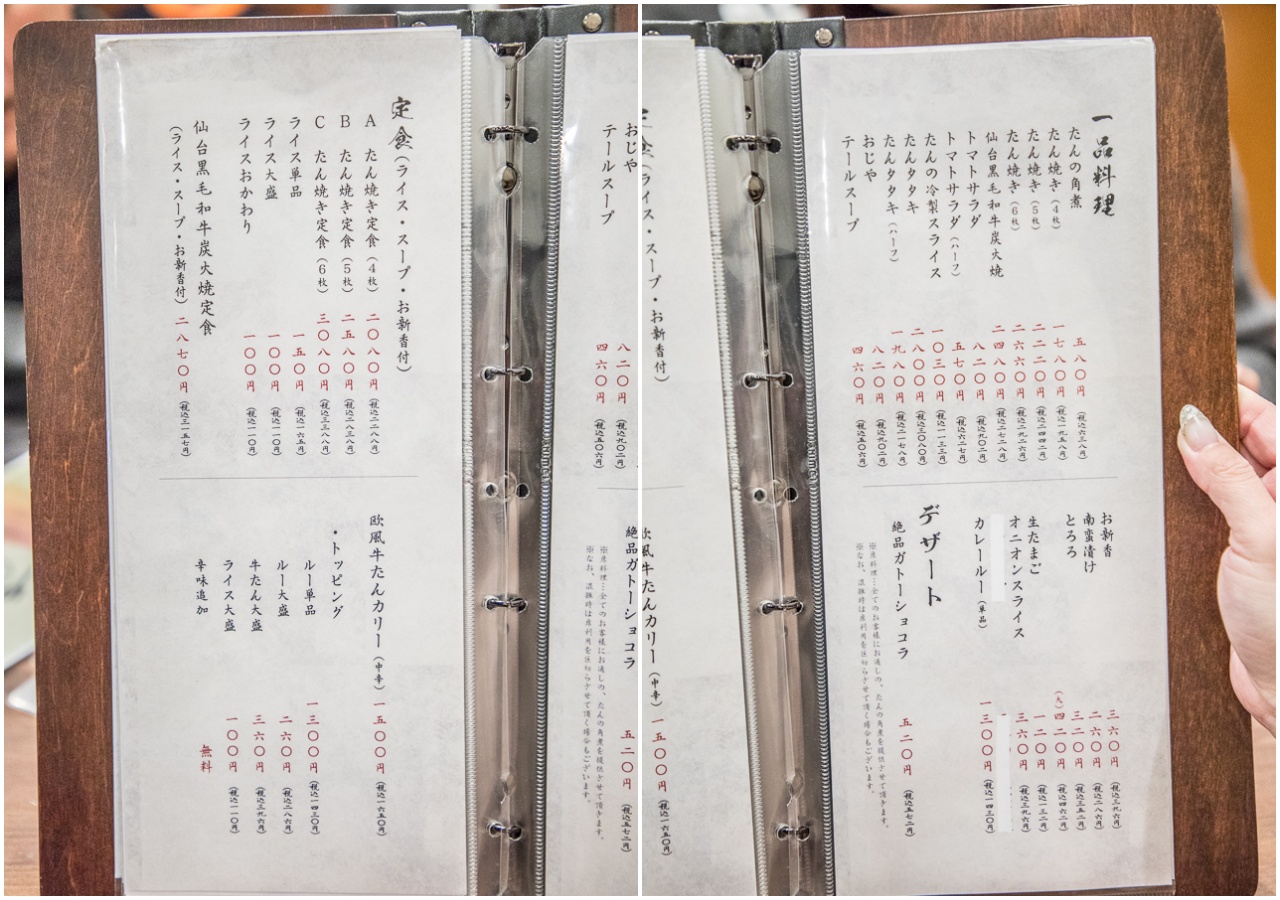 定食(ライス・スープ・お新香付)
A たん焼き定食(4枚) 二〇八〇円 (税込二二八八円)
B たん焼き定食(5枚) 二五八〇円 (税込二八三八円)
C たん焼き定食(6枚) 三〇八〇円 (税込三三八八円)
ライス単品 一五〇円 (税込一六五円)
ライス大盛 一〇〇円 (税込一一〇円)
ライスおかわり 一〇〇円 (税込一一〇円)
仙台黒毛和牛炭火焼定食
(ライス・スープ・お新香付) 二八七〇円 (税込三一五七円)
欧風牛たんカリー(中辛) 一五〇〇円 (税込一六五〇円)
・トッピング
ルー単品 一三〇〇円 (税込一四三〇円)
ルー大盛 二六〇円 (税込二八六円)
牛たん大盛 三六〇円 (税込三九六円)
ライス大盛 一〇〇円 (税込一一〇円)
辛味追加 無料
おじや 八二〇円 (税込九〇二円)
テールスープ 四六〇円 (税込五〇六円)
絶品ガトーショコラ 五二〇円 (税込五七二円)
※席料理…全てのお客様にお通しの、たんの角煮を提供させて頂きます。
※なお、混雑時は席利用を区切らさせて頂く場合もございます。
定食(ライス・スープ・お新香付)
欧風牛たんカリー(中辛) 一五〇〇円 (税込一六五〇円)
一品料理
たんの角煮 五八〇円 (税込六三八円)
たん焼き(4枚) 一七八〇円 (税込一九五八円)
たん焼き(5枚) 二二二〇円 (税込二四四二円)
たん焼き(6枚) 二六六〇円 (税込二九二六円)
仙台黒毛和牛炭火焼 二四八〇円 (税込二七二八円)
トマトサラダ 八二〇円 (税込九〇二円)
トマトサラダ(ハーフ) 五七〇円 (税込六二七円)
たんの冷製スライス 一〇三〇円 (税込一一三三円)
たんタタキ 二八〇〇円 (税込三〇八〇円)
たんタタキ(ハーフ) 一九八〇円 (税込二一七八円)
おじや 八二〇円 (税込九〇二円)
テールスープ 四六〇円 (税込五〇六円)
お新香 三六〇円 (税込三九六円)
南蛮漬け 二六〇円 (税込二八六円)
とろろ 三二〇円
(大)四二〇円 (税込四六二円)
生たまご 一二〇円 (税込一三二円)
オニオンスライス 三六〇円 (税込三九六円)
カレールー(単品) 一三〇〇円 (税込一四三〇円)
デザート
絶品ガトーショコラ 五二〇円 (税込五七二円)
※席料理…全てのお客様にお通しの、たんの角煮を提供させて頂きます。
※なお、混雑時は席利用を区切らさせて頂く場合もございます。